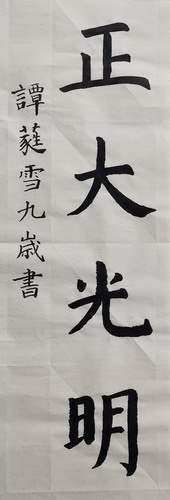 正大光明
譚蕤雪九歲書